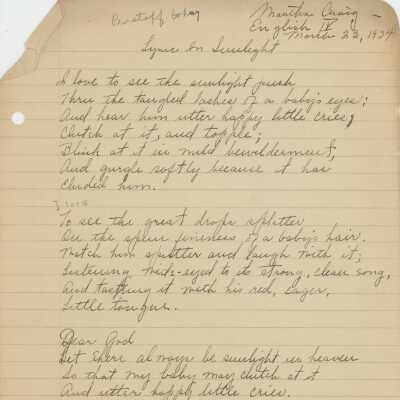 Martha Craig
English IV
March 22, 1934
Lyric on Sunlight
I love to see the sunlight push
Thru the tangled lashes of a baby's eyes;
And hear him utter happy little cries;
Clutch at it, and topple;
Blink at it in mild bewilderment,
And gurgle softly because it has
Eluded him.
To see the great drops splitter
On the spun fineness of a baby's hair.
Watch him sputter and laugh with it;
Listening wide-eyed to its strong, clean song,
And tasting it with his red, eager,
Little tongue.
Dear God
Let there always be sunlight in heaven
So that my baby may clutch at it
And utter happy little cries.